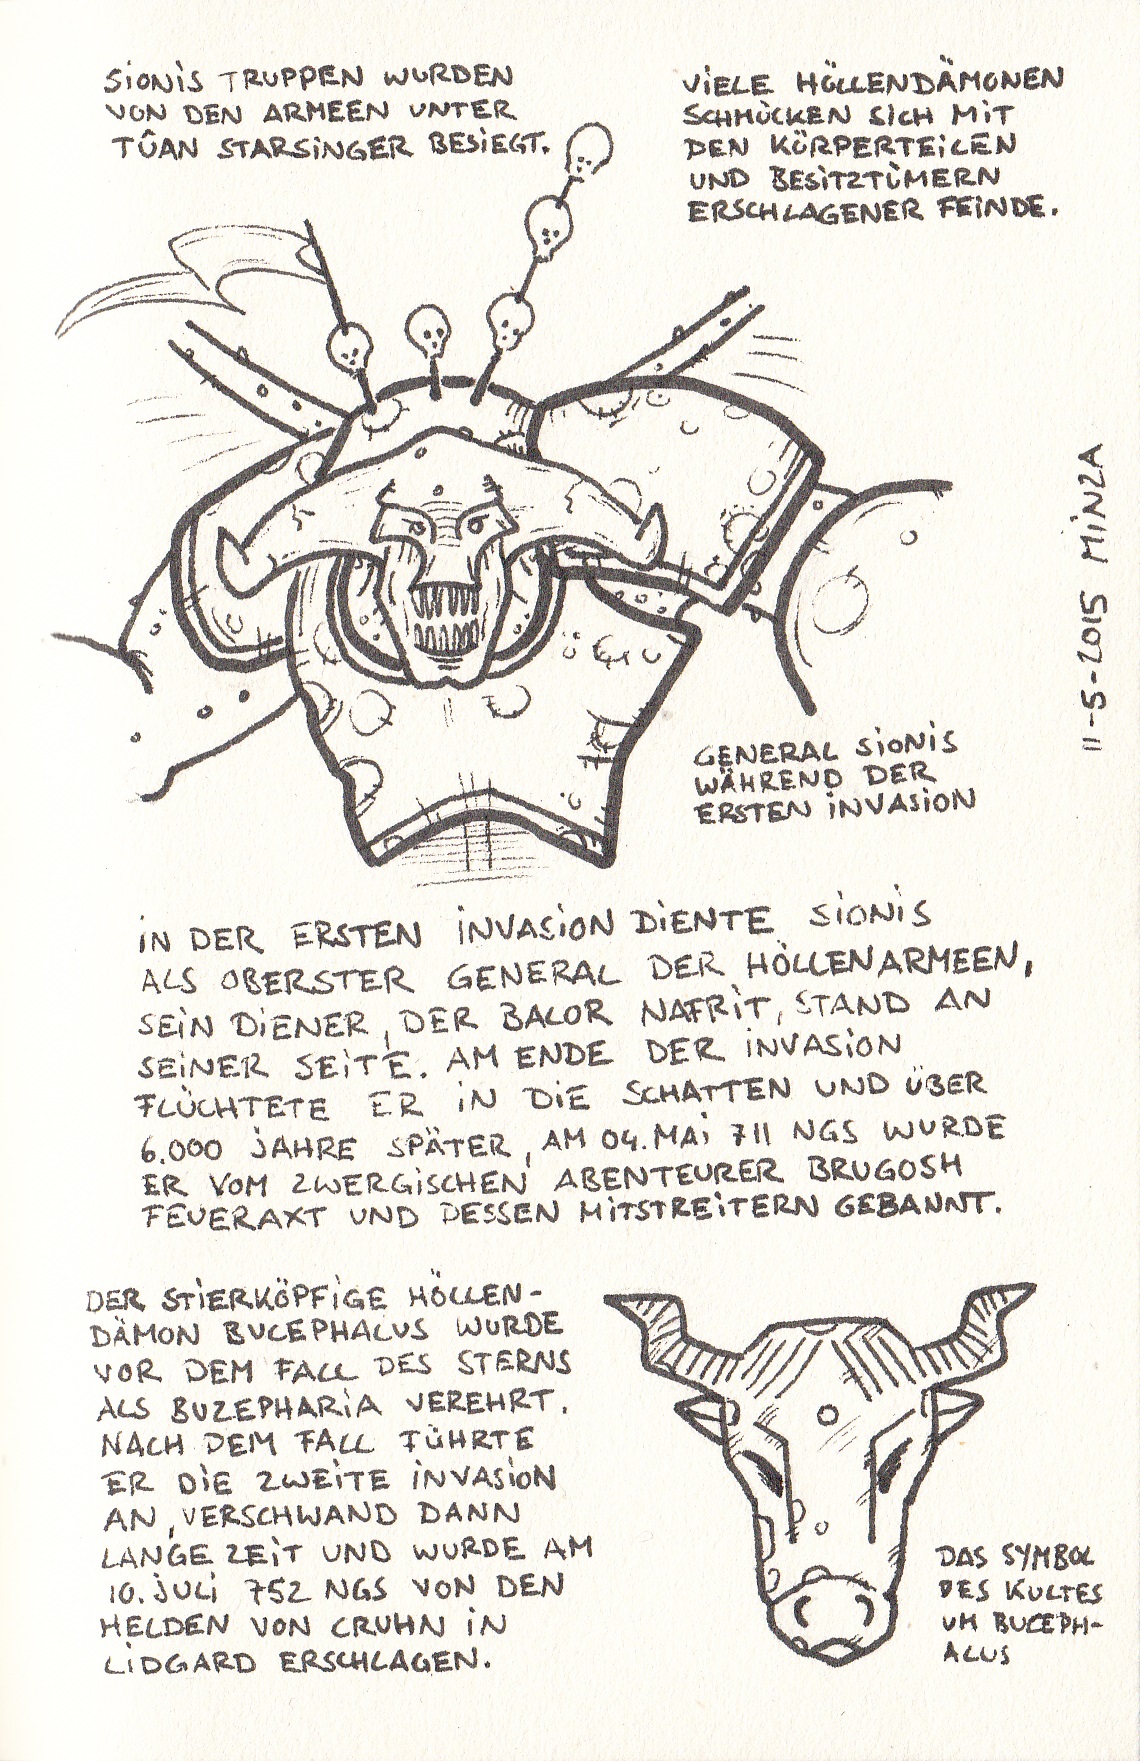 SIONIS TRUPPEN WURDEN
VON DEN ARMEEN UNTER
TÛAN STARSINGER BESIEGT.
VIELE HÖLLENDÄMONEN
SCHMÜCKEN SICH MIT
DEN KÖRPERTEILEN
UND BESITZTÜMERN
ERSCHLAGENER FEINDE.
11-5-2015 MINZA
GENERAL SIONIS
WÄHREND DER
ERSTEN INVASION
IN DER ERSTEN INVASION DIENTE SIONIS
ALS OBERSTER GENERAL DER HÖLLENARMEEN,
SEIN DIENER, DER BALOR NAFRIT, STAND AN
SEINER SEITE. AM ENDE DER INVASION
FLÜCHTETE ER IN DIE SCHATTEN UND ÜBER
6.000 JAHRE SPÄTER, AM 04. MAI 711 NGS WURDE
ER VOM ZWERGISCHEN ABENTEURER BRUGOSH
FEUERAXT UND DESSEN MITSTREITERN GEBANNT.
DER STIERKÖPFIGE HÖLLEN-
DÄMON BUCEPHALUS WURDE
VOR DEM FALL DES STERNS
ALS BUZEPHARIA VEREHRT.
NACH DEM FALL FÜHRTE
ER DIE ZWEITE INVASION
AN, VERSCHWAND DANN
LANGE ZEIT UND WURDE AM
10. JULI 752 NGS VON DEN
HELDEN VON CRUHN IN
LIDGARD ERSCHLAGEN.
DAS SYMBOL
DES KULTES
UM BUCEPH-
ALUS